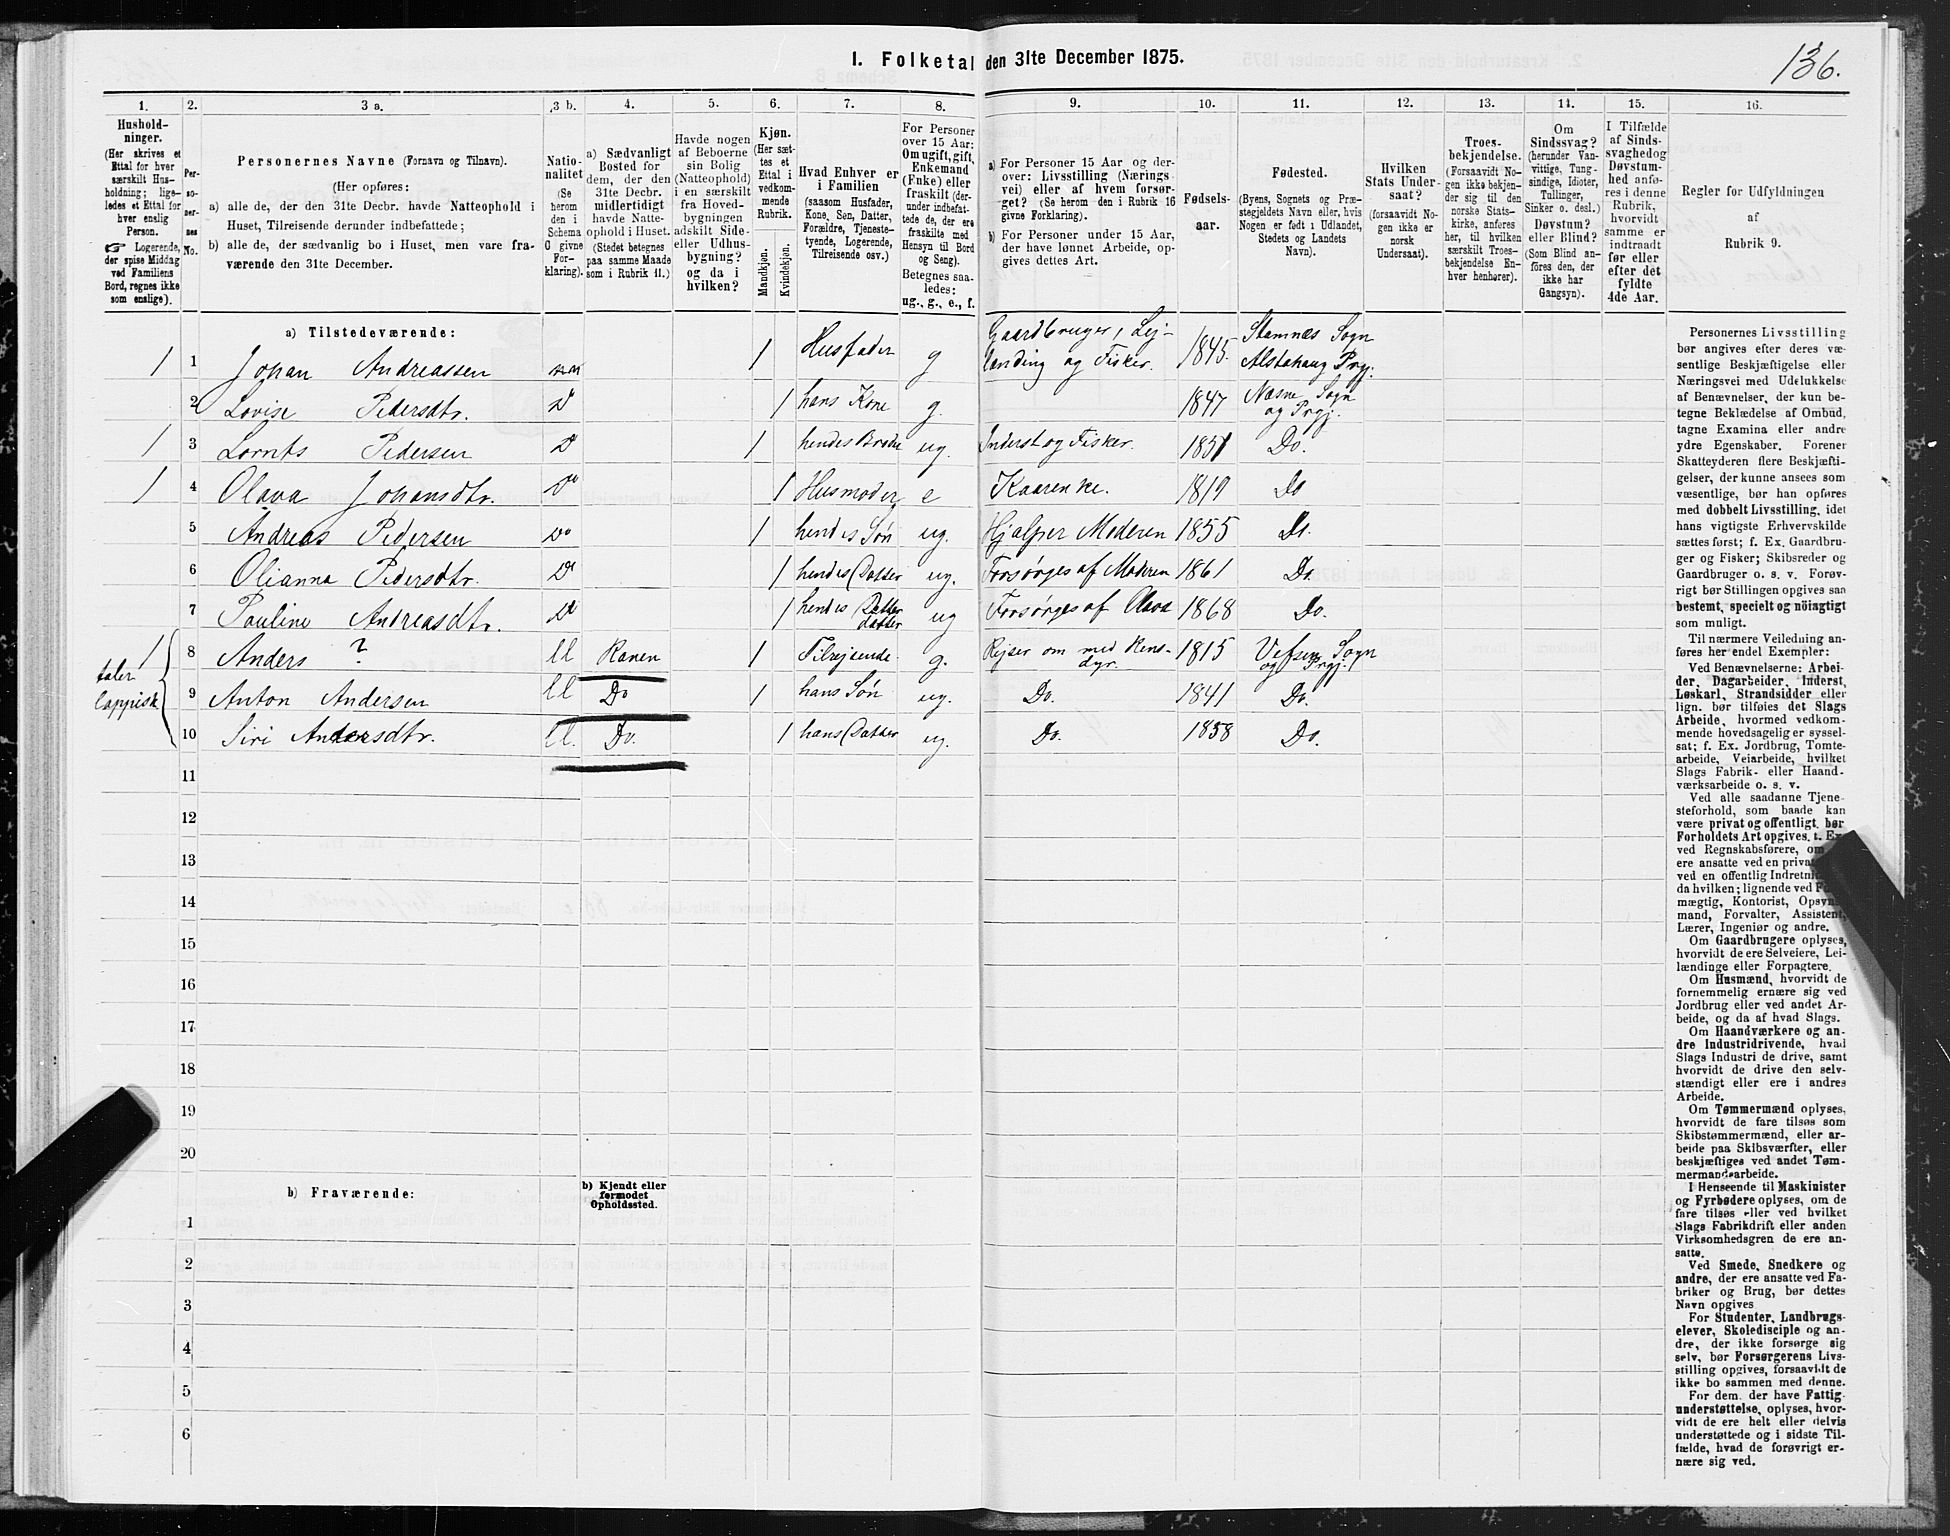 1. Folketal den 31te December 1875.
136.
1.
Hushold-
ninger.
(Her skrives et
Ettal for hver
særskilt Hus-
holdning; lige-
ledes et Ettal for
hver enslig
Person.
☞ Logerende,
der spise Middag
ved Familiens
Bord, regnes ikke
som enslige).
2.
Per-
so-
ner-
nes
No.
3 a.
Personernes Navne (Fornavn og Tilnavn).
(Her opføres:
a) alle de, der den 31te Decbr. havde Natteophold i
Huset, Tilreisende derunder indbefattede;
b) alle de, der sædvanlig bo i Huset, men vare fra-
værende den 31te December.
3 b.
Natio-
nalitet
(Se
herom
den i
Schema
C givne
For-
klaring).
4.
a) Sædvanligt
Bosted for
dem, der den
31te Decbr.
midlertidigt
havde Natte-
ophold i Huset.
(Stedet betegnes
paa samme Maade
som i Rubrik 11.)
5.
Havde nogen
af Beboerne
sin Bolig
(Natteophold)
i en særskilt
fra Hoved-
bygningen
adskilt Side-
eller Udhus-
bygning?
og da i
hvilken?
6.
Kjøn.
(Her sæt-
tes et
Ettal i
vedkom-
mende
Rubrik.
Mandkjøn.
Kvindekjøn.
7.
Hvad Enhver er
i Familien
(saasom Husfader,
Kone, Søn, Datter,
Forældre, Tjeneste-
tyende, Logerende,
Tilreisende osv.)
8.
For Personer
over 15 Aar:
Om ugift, gift,
Enkemand
(Enke) eller
fraskilt (der-
under indbefat-
tede de, der ere
fraskilte med
Hensyn til Bord
og Seng).
Betegnes saa-
ledes:
ug., g., e., f.
9.
a) For Personer 15 Aar og der-
over: Livsstilling (Nærings-
vei) eller af hvem forsør-
get? (Se herom den i Rubrik 16
givne Forklaring).
b) For Personer under 15 Aar,
der have lønnet Arbeide, op-
gives dettes Art.
10.
Fødsels-
aar.
11.
Fødested.
(Byens, Sognets og Præ-
stegjeldets Navn eller, hvis
Nogen er født i Udlandet,
Stedets og Landets
Navn).
12.
Hvilken
Stats Under-
saat?
(forsaavidt No-
gen ikke er
norsk
Undersaat).
13.
Troes-
bekjendelse.
(Forsaavidt No-
gen ikke bekjen-
der sig til den
norske Stats-
kirke, anføres
her, til hvilken
særskilt Troes-
bekjendelse En-
hver henhører).
14.
Om
Sindssvag?
(herunder Van-
vittige, Tung-
sindige, Idioter,
Tullinger,
Sinker o. desl.)
Døvstum?
eller Blind?
(Som Blind an-
føres den, der
ikke har
Gangsyn).
15.
I Tilfælde
af Sinds-
svaghed og
Døvstum-
hed anfø-
res i denne
Rubrik,
hvorvidt
samme er
indtraadt
før eller
efter det
fyldte
4de Aar.
16.
Regler for Udfyldningen
af
Rubrik 9.
a) Tilstedeværende:
1 1 Johan Andreassen nn 1 Husfader g Gaardbruger, Lej-landing og Fisker. 1845. Stamnæs Sogn Alstahaug Prgj.
2 Lovise Pedersdtr. D 1 hans Kone g. 1847 Næsne Sogn og Prgj.
1 3 Lornts Pedersen D 1 hendes Broder ug. Inderst og Fisker. 1851 Do.
1 4 Olava Johansdtr. Do 1 Husmoder e Kaarenke. 1819 Do
5 Andreas Pedersen Do 1 hendes Søn ug. Hjælper Moderen 1855 Do.
6 Olianna Pedersdtr. Do 1 hendes Datter ug. Forsørges af Moderen 1861 Do.
7 Pauline Andreasdtr. Do 1 hendes Datter datter ug Forsørges af Olava 1868 Do.
taler lappisk
1 8 Anders ? ll Ranen 1 Tilrejsende. g. Rejser om med Rens-dyr. 1815 Vefsen Sogn og Prgj.
9 Anton Andersen ll Do 1 hans Søn ug. Do. 1841 Do.
10 Siri Andersdtr. ll. Do. 1 hans Datter ug. Do. 1858 Do.
11
12
13
14
15
16
17
18
19
20
b) Fraværende:
b) Kjendt eller
formodet
Opholdssted.
1
2
3
4
5
6
Personernes Livsstilling
bør angives efter deres væ-
sentlige Beskjæftigelse eller
Næringsvei med Udelukkelse
af Benævnelser, der kun be-
tegne Beklædelse af Ombud,
tagne Examina eller andre
ydre Egenskaber. Forener
Skatteyderen flere Beskjæfti-
gelser, der kunne ansees som
væsentlige, bør han opføres
med dobbelt Livsstilling, idet
hans vigtigste Erhvervskilde
sættes først; f. Ex. Gaardbru-
ger og Fisker; Skibsreder og
Gaardbruger o. s. v. Forøv-
rigt bør Stillingen opgives saa
bestemt, specielt og nöiagtigt
som muligt.
Til nærmere Veiledning an-
føres her endel Exempler:
Ved Benævnelserne: Arbei-
der, Dagarbeider, Inderst,
Løskarl, Strandsidder eller
lign. bør tilføies det Slags
Arbeide, hvormed vedkom-
mende hovedsagelig er syssel-
sat; f. Ex. Jordbrug, Tomte-
arbeide, Veiarbeide, hvilket
Slags Fabrik- eller Haand-
værksarbeide o. s. v.
Ved alle saadanne Tjene-
steforhold, som baade kan
være privat og offentligt, bør
Forholdets Art opgives, t. Ex.
ved Regnskabsførere, om
ere ansatte ved en privat
ved en offentlig Indretning
da hvilken; lignende ved
mægtig, Kontorist, Opsyns-
mand, Forvalter, Assistent,
Lærer, Ingeniør og andre.
Om Gaardbrugere oplyses,
hvorvidt de ere Selveiere, Lei-
lændinge eller Forpagtere.
Om Husmænd, hvorvidt de
fornemmelig ernære sig ved
Jordbrug eller ved andet Ar-
beide, og da af hvad Slags.
Om Haandværkere og an-
dre Industridrivende, hvad
Slags Industri de drive, samt
hvorvidt de drive den selv-
stændigt eller ere i andres
Arbeide.
Om Tømmermænd oplyses,
hvorvidt de fare tilsøs som
Skibstømmermænd, eller ar-
beide paa Skibsværfter, eller
beskjæftiges ved andet Tøm-
mermandsarbeide.
I Henseende til Maskinister
og Fyrbødere oplyses, om de
fare tilsøs eller ved hvilket
Slags Fabrikdrift eller anden
Virksomhedsgren de ere an-
satte.
Ved Smede, Snedkere og
andre, der ere ansatte ved Fa-
briker og Brug, bør dettes
Navn opgives
For Studenter, Landbrugs-
elever, Skoledisciple og an-
dre, der ikke forsørge sig
selv, bør Forsørgerens Livs-
stilling opgives, forsaavidt de
ikke bo sammen med denne.
For dem, der have Fattig-
understøttelse, oplyses, hvor-
vidt de ere helt eller delvis
understøttede og i sidste Til-
fælde, hvad de forøvrigt er-
nære sig ved.